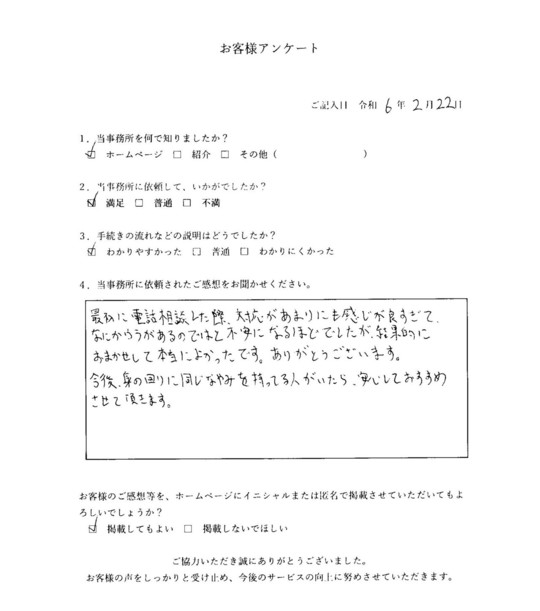 お客様アンケート
ご記入日 令和 6 年 2 月 22 日
1．当事務所を何で知りましたか？
☑ ホームページ □ 紹介 □ その他（ ）
2．当事務所に依頼して、いかがでしたか？
☑ 満足 □ 普通 □ 不満
3．手続きの流れなどの説明はどうでしたか？
☑ わかりやすかった □ 普通 □ わかりにくかった
4．当事務所に依頼されたご感想をお聞かせください。
最初に電話相談した際、対応があまりにも感じが良すぎて、
なにかウラがあるのではと不安になるほどでしたが、結果的に
おまかせして本当によかったです。ありがとうございます。
今後、身の回りに同じなやみを持ってる人がいたら、安心しておすすめ
させて頂きます。
お客様のご感想等を、ホームページにイニシャルまたは匿名で掲載させていただいてもよ
ろしいでしょうか？
☑ 掲載してもよい □ 掲載しないでほしい
ご協力いただき誠にありがとうございました。
お客様の声をしっかりと受け止め、今後のサービスの向上に努めさせていただきます。